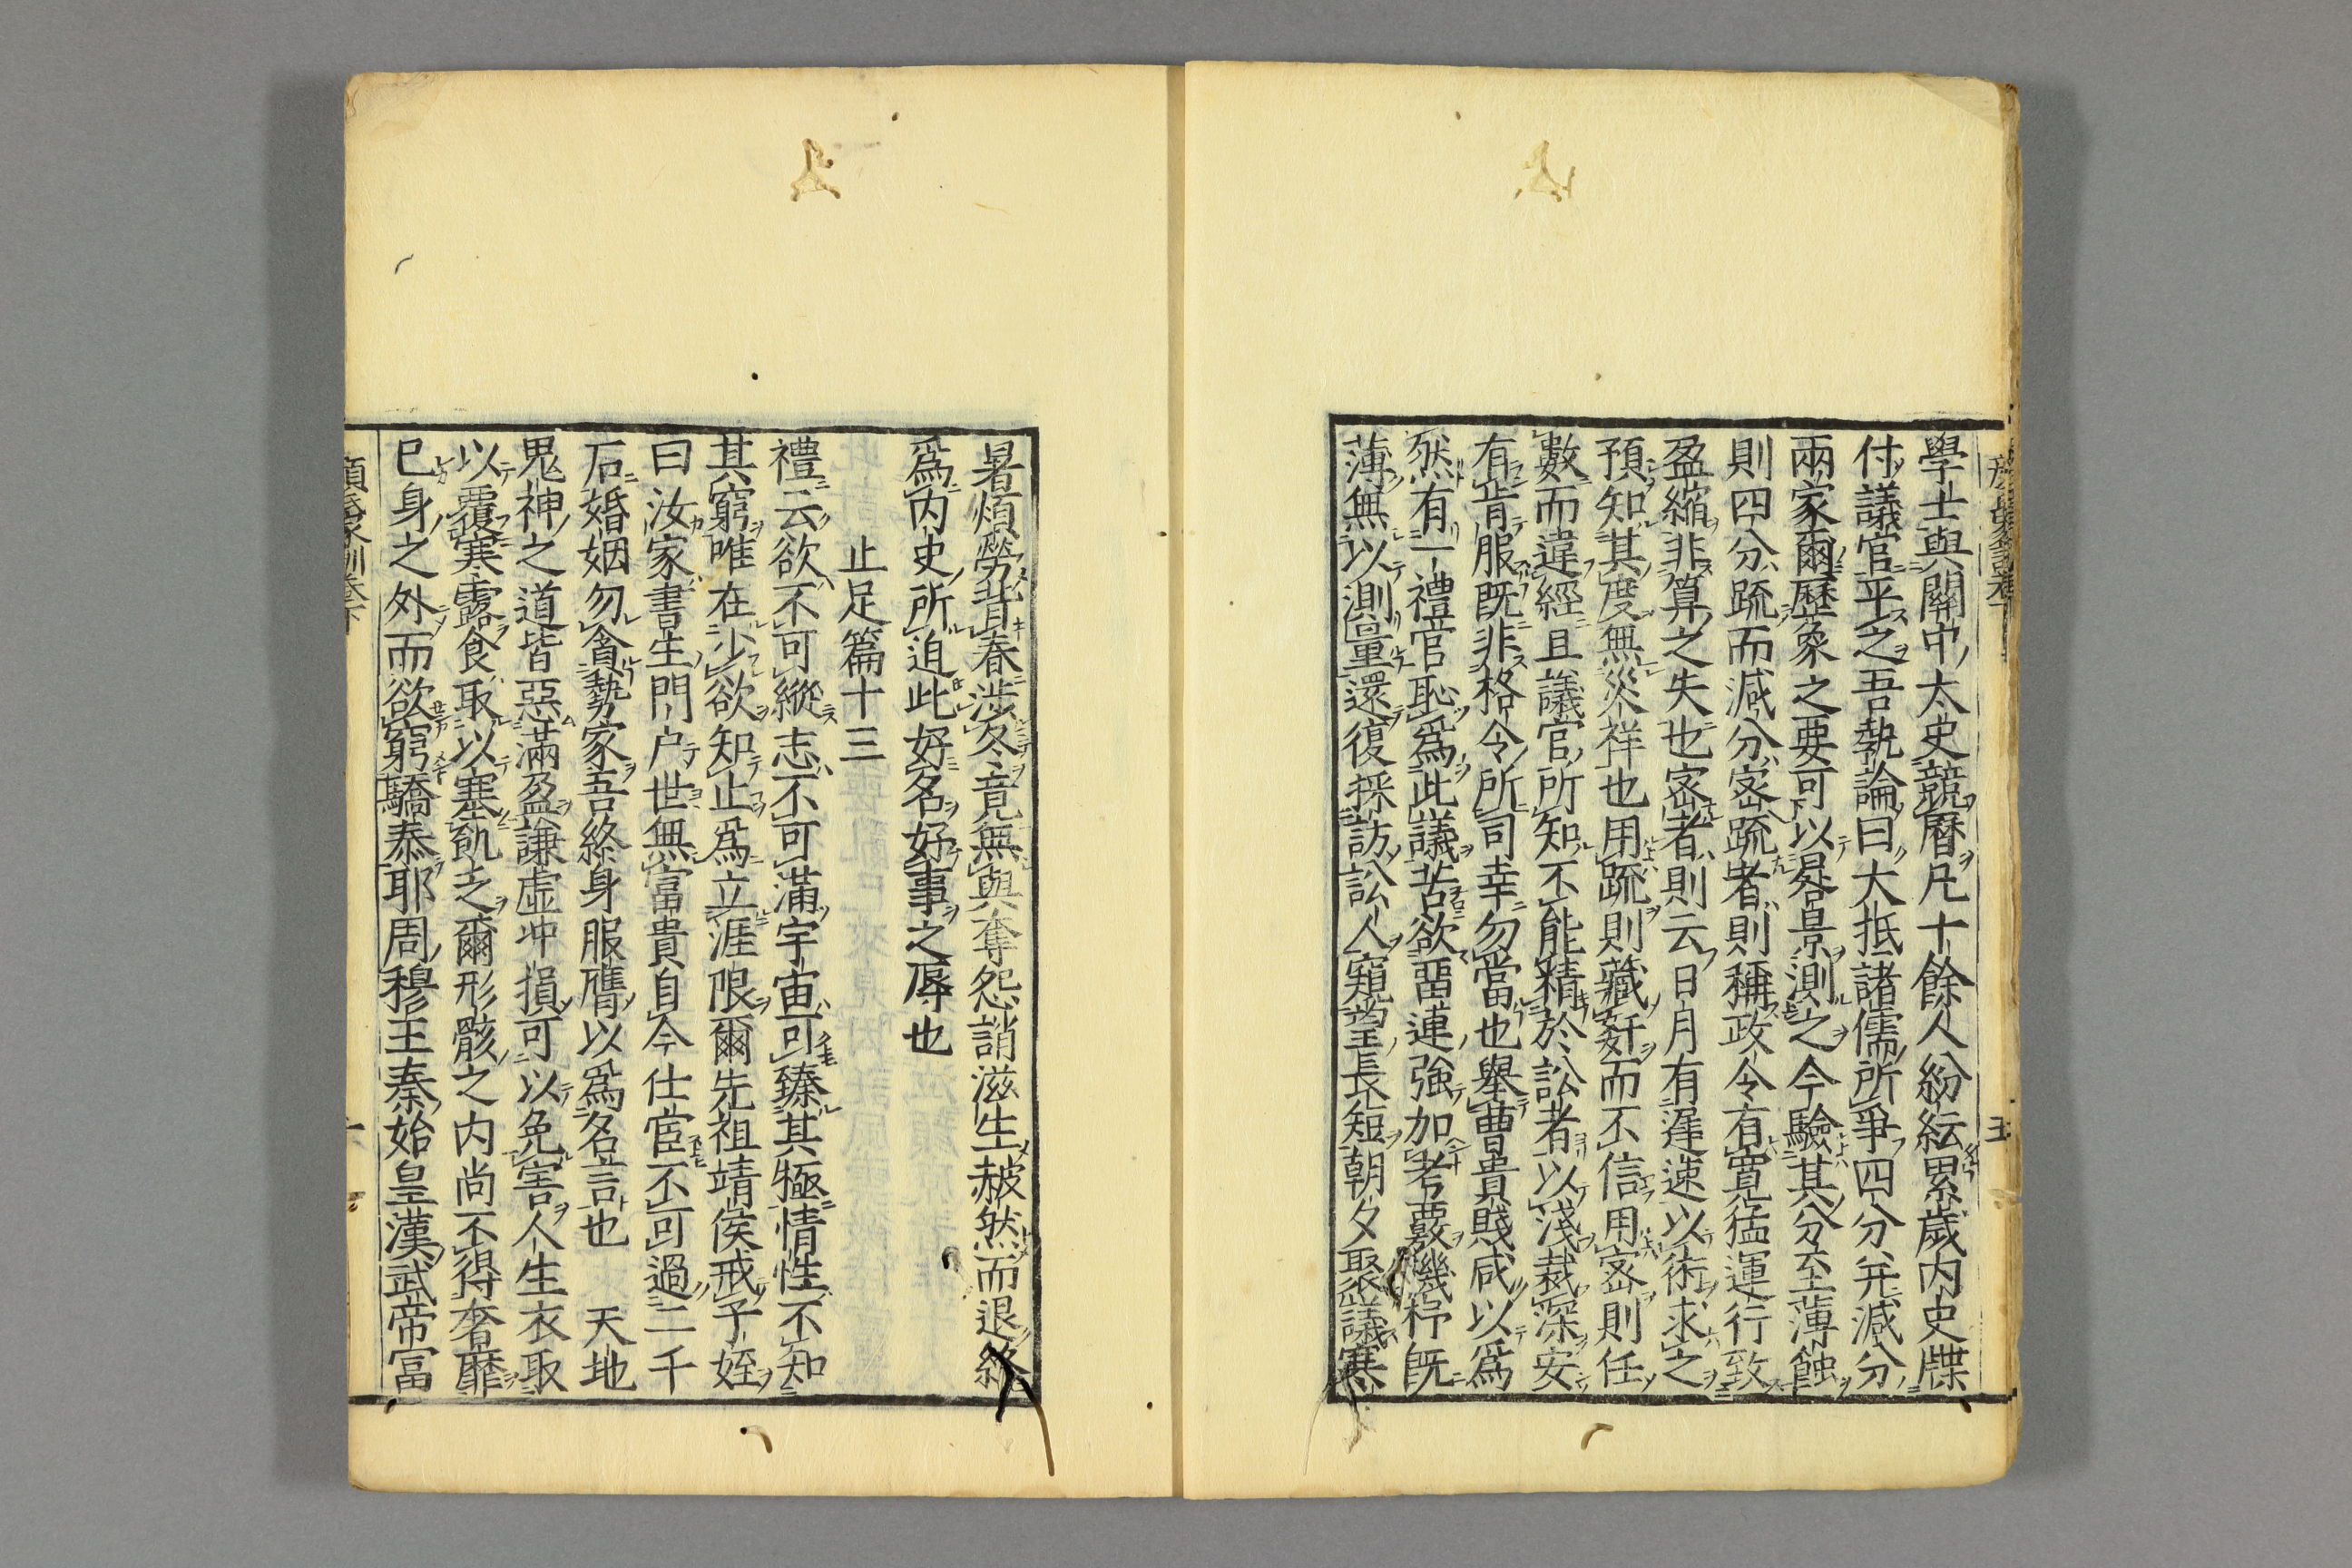 學士與關中太史競曆凡十餘人紛紜累歲内史牒
付議官平之吾執論曰大抵諸儒所爭四分并減分
兩家爾歷象之要可以晷景測之今驗其分至薄蝕
則四分疏而減分密疏者則稱政令有寛猛運行致
盈縮非算之失也密者則云日月有遲速以術求之
預知其度無災祥也用疏則藏姧而不信用密則任
數而違經且議官所知不能精於訟者以淺裁深安
有肯服既非格令所司幸勿當也舉曹貴賤咸以爲
然有一禮官恥爲此議苦欲畱連強加考覈機杼既
薄無以測量還復採訪訟人窺望長短朝夕聚議寒
暑煩勞背春涉冬竟無與奪怨誚滋生赧然而退終
爲内史所迫此好名好事之辱也
止足篇十三
禮云欲不可縱志不可滿宇宙可臻其極情性不知
其窮唯在少欲知止爲立涯限爾先祖靖侯戒子姪
曰汝家書生門户世無富貴自今仕宦不可過二千
石婚姻勿貪勢家吾終身服膺以爲名言也 天地
鬼神之道皆惡滿盈謙虚冲損可以免害人生衣取
以覆寒露食取以塞飢乏爾形骸之内尚不得奢靡
已身之外而欲窮驕泰耶周穆王秦始皇漢武帝富
顔氏家訓卷下